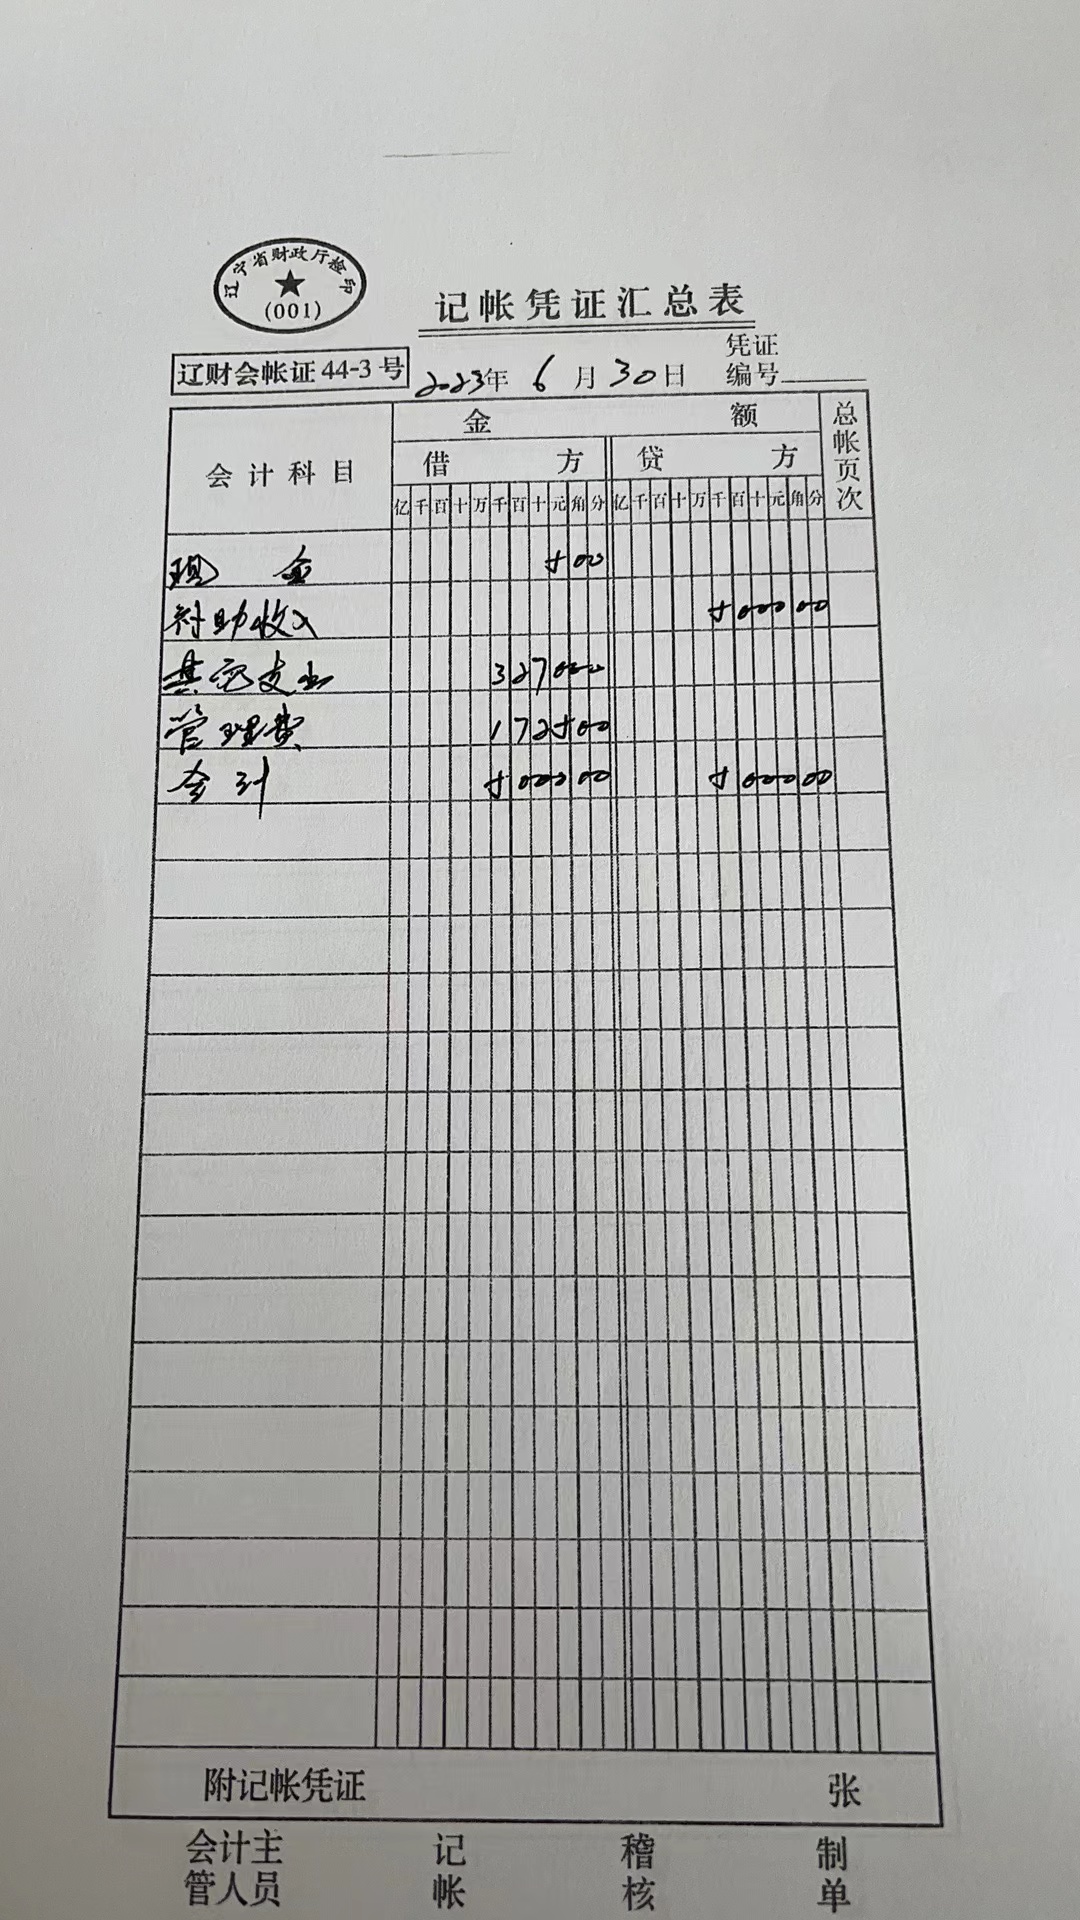 辽宁省财政厅检印
(001)
记帐凭证汇总表
辽财会帐证 44-3 号
2023年 6 月 30 日
凭证编号
会计科目
金额
总帐页次
借方
贷方
亿千百十万千百十元角分 亿千百十万千百十元角分
现金 500
补助收入 500000
其它支出 327000
管理费 172500
合计 500000 500000
附记帐凭证 张
会计主管人员 记帐 稽核 制单